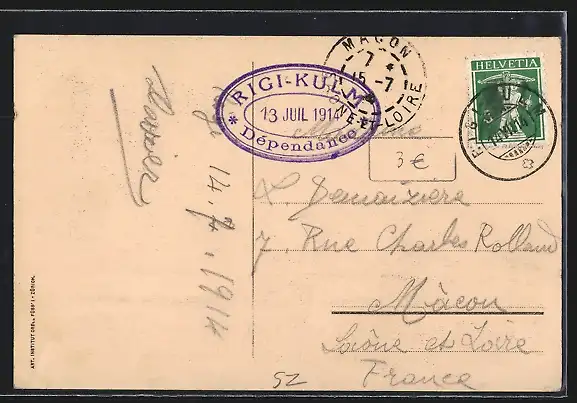 MACON
7 4
15-7
NE-LOIRE
HELVETIA
* RIGI-KULM *
13 JUIL 1914
Dépendance
3 €
7, Rue Charles Rolland
Mâcon
Saône et Loire
France
14.7.1914
ART. INSTITUT ORELL FÜSSLI - ZÜRICH.
52